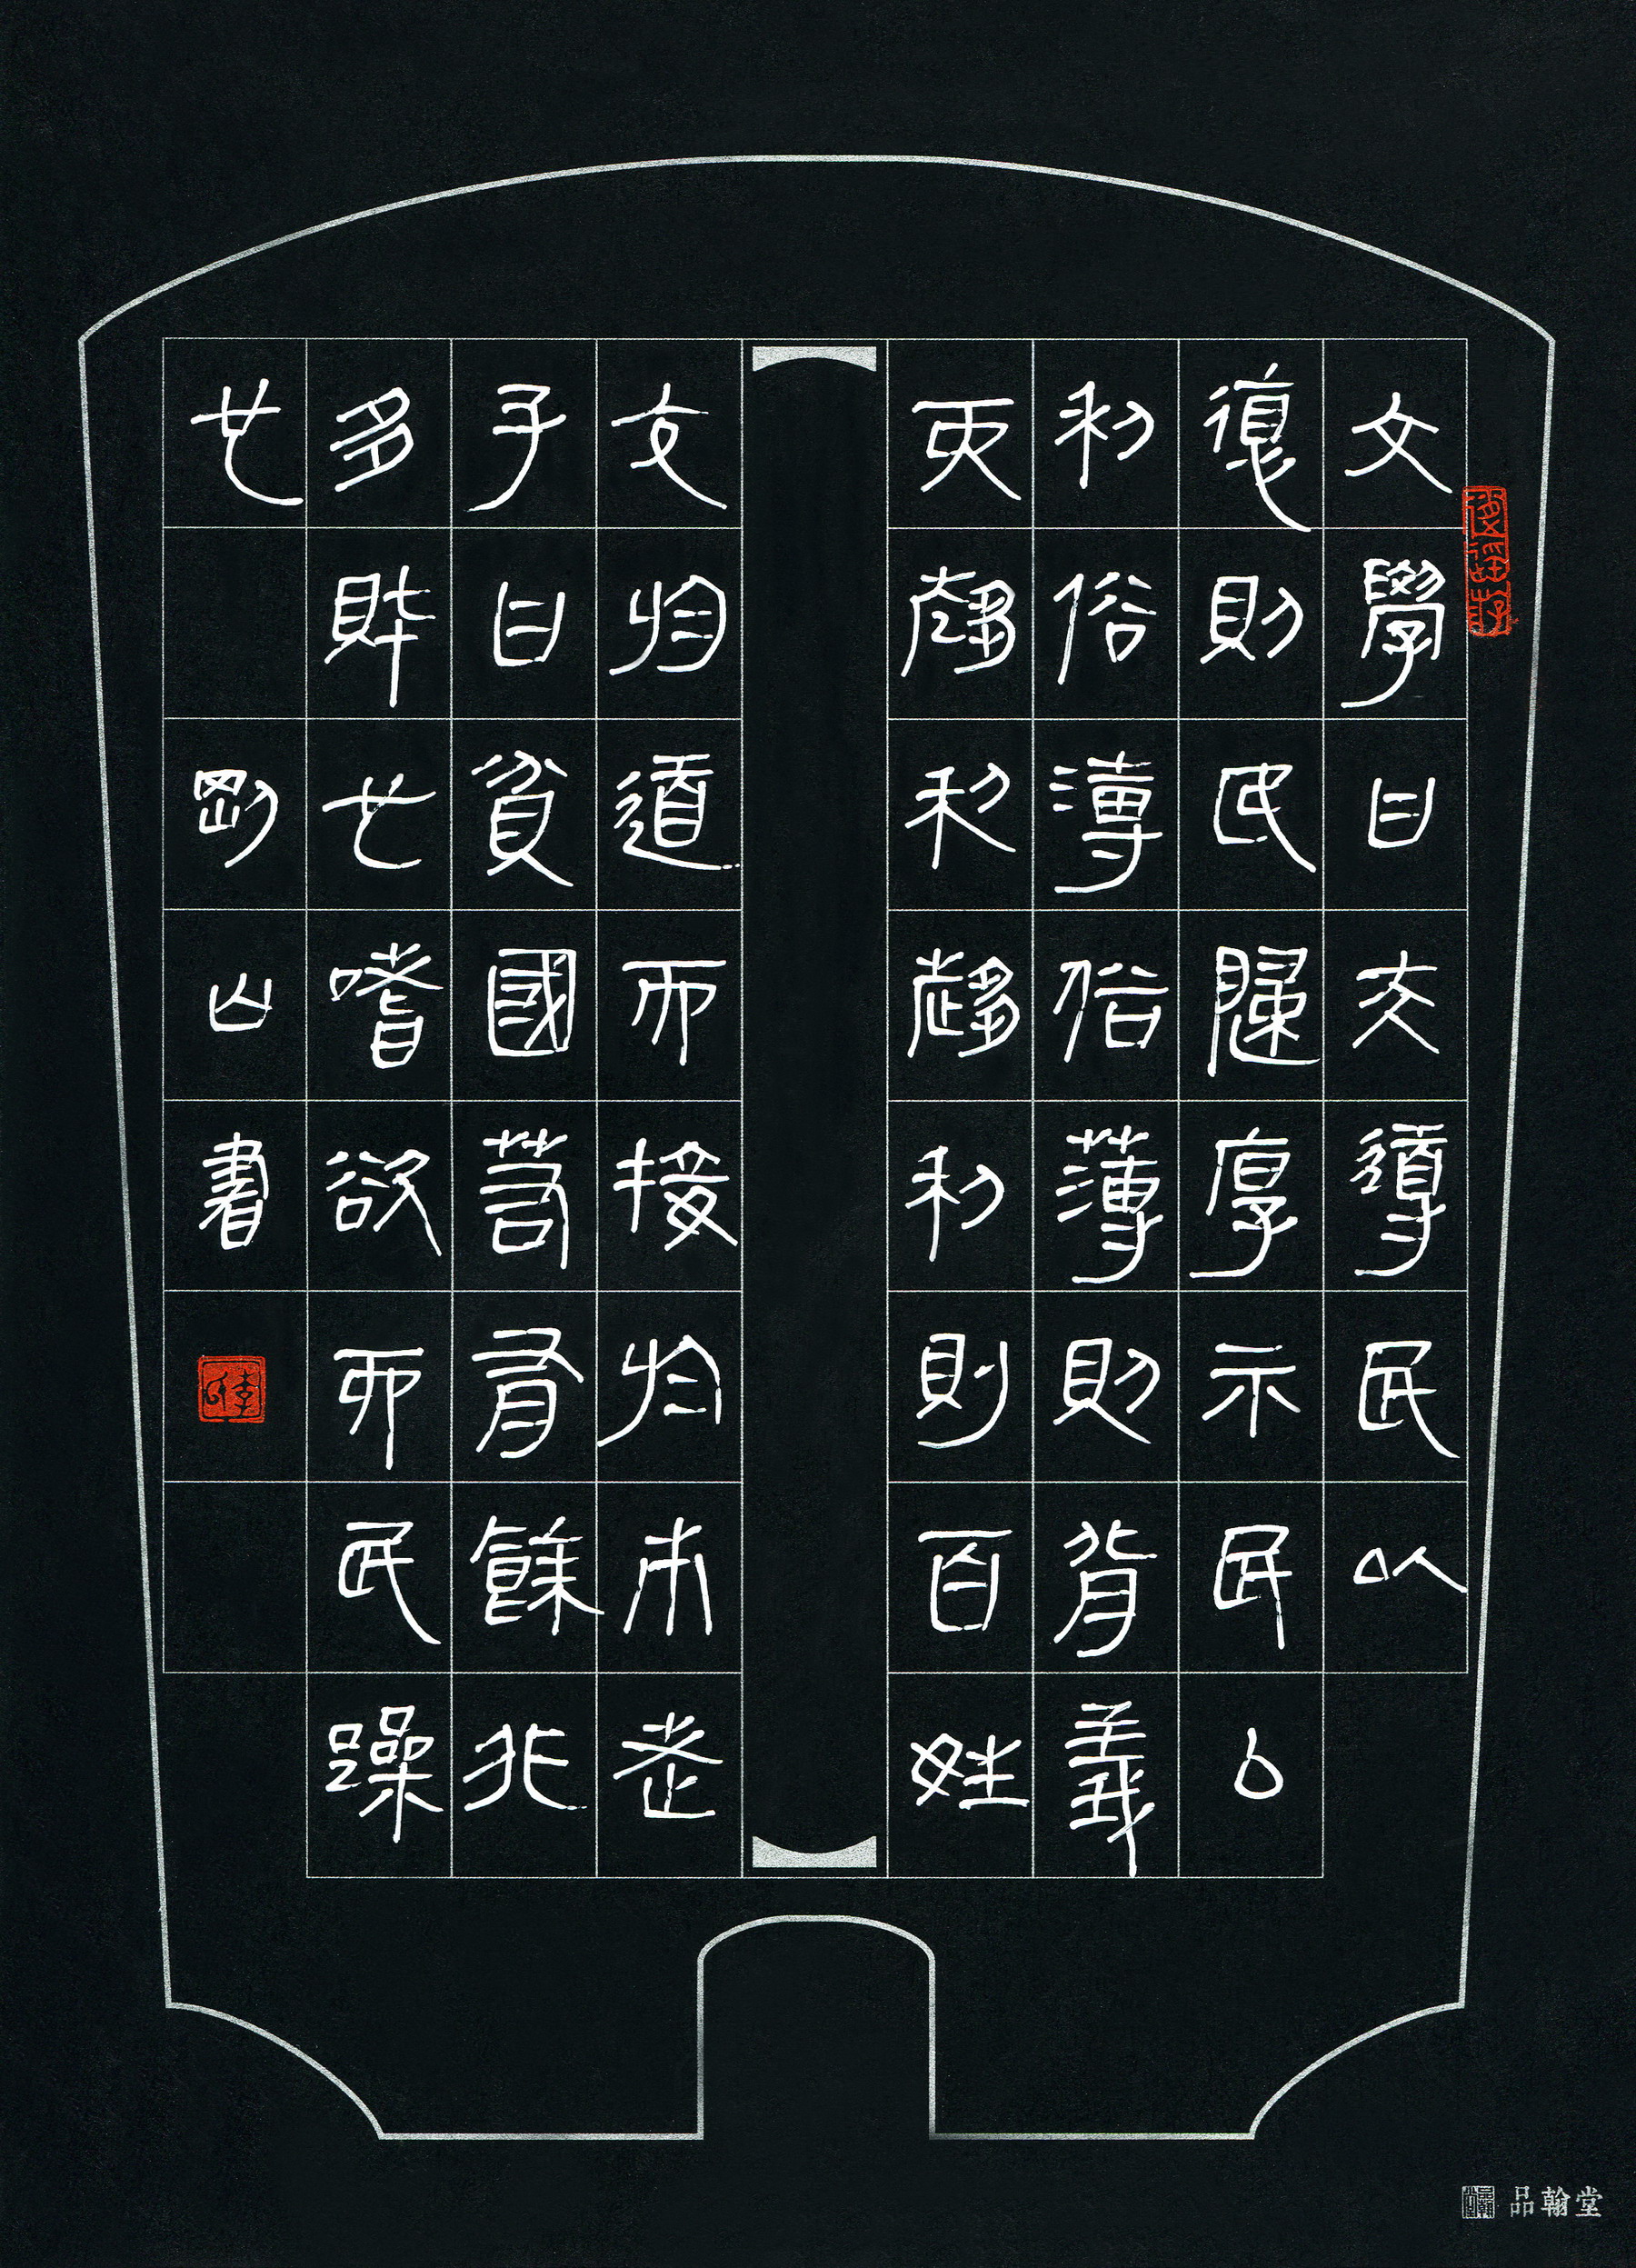 文學曰夫導民以
德則民歸厚示民以
利俗薄俗薄則背義
而趨利趨利則百姓
交於道而接於市老
子曰貧國若有餘非
多財也嗜欲而民躁
也 剛山書
品翰堂